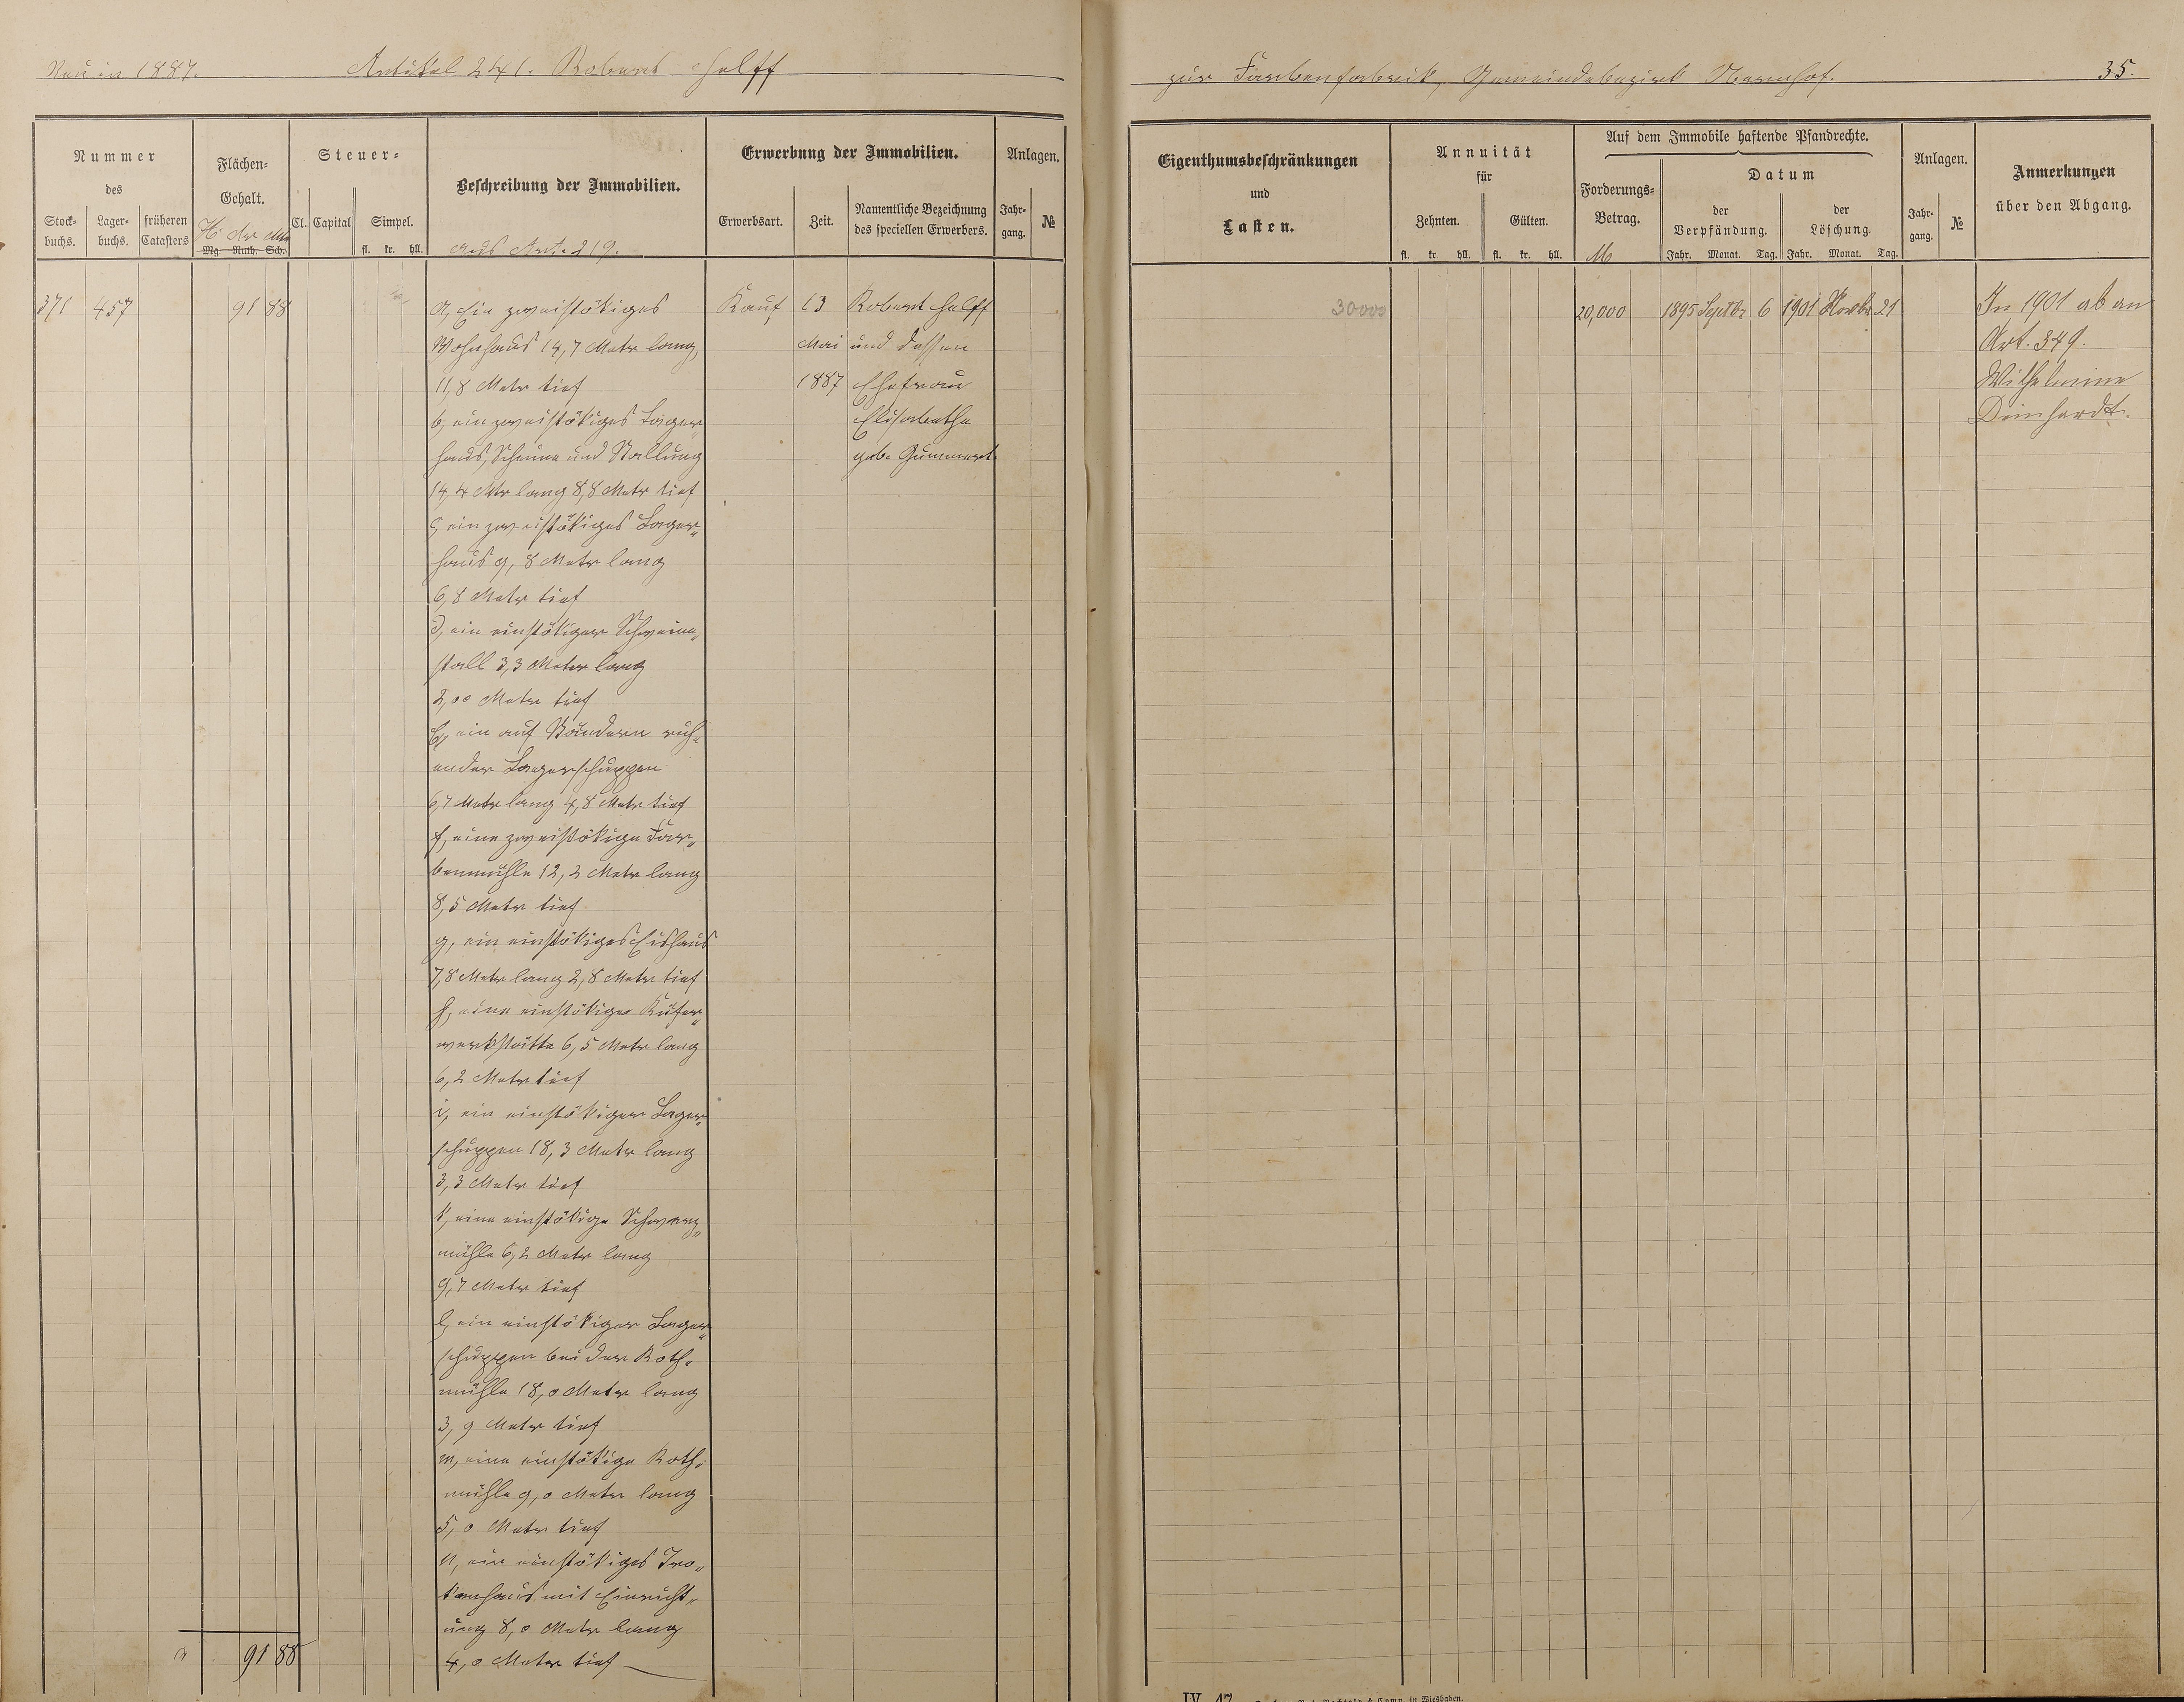 Neu in 1887. Artikel 241. Robert Helff
zur Farbenfabrik, Gemeindebezirk Obernhof. 35.
Nummer
des
Stock-
buchs.
Lager-
buchs.
früheren
Catasters
Flächen-
Gehalt.
H. Ar Mtr
Mg. Ruth. Sch.
Steuer-
Cl. Capital Simpel.
fl. kr. hll.
Beschreibung der Immobilien.
aus Art. 219.
Erwerbung der Immobilien.
Erwerbsart. Zeit.
Namentliche Bezeichnung
des speciellen Erwerbers.
Anlagen.
Jahr-
gang.
№
371 457 91 88
a, Ein zweistökiges
Wohnhaus 14,7 Metr lang,
11,8 Metr tief
b, ein zweistökiges Lager-
haus, Scheune und Stallung
14,4 Mtr lang 8,8 Metr tief
c, ein zweistökiges Lager-
haus 9,8 Metr lang
6,8 Metr tief
d, ein einstökiger Schweine-
stall 3,3 Meter lang
2,00 Meter tief
e, ein auf Ständern ruh-
ender Lagerschuppen
6,7 Metr lang 4,8 Metr tief
f, eine zweistökige Far-
benmühle 12,2 Metr lang
8,5 Metr tief
g, ein einstökiges Eishaus
7,8 Metr lang 2,8 Metr tief
h, eine einstökige Küfer-
werkstätte 6,5 Metr lang
6,2 Metr tief
i, ein einstökiger Lager-
schuppen 18,3 Metr lang
3,3 Metr tief
k, eine einstökige Schwarz-
mühle 6,2 Metr lang
9,7 Metr tief
l, ein einstökiger Lager-
schuppen bei der Roth-
mühle 18,0 Metr lang
3,9 Metr tief
m, eine einstökige Roth-
mühle 9,0 Metr lang
5,0 Metr tief
n, ein einstökiges Tro-
kenhaus mit Einricht-
ung 8,0 Metr lang
4,0 Meter tief
Kauf
13
Mai
1887
Robert Helff
und dessen
Ehefrau
Elisabetha
geb. Gummert
91 88
Eigenthumsbeschränkungen
und
Lasten.
Annuität
für
Zehnten. Gülten.
fl. kr. hll. fl. kr. hll.
Auf dem Immobile haftende Pfandrechte.
Forderungs-
Betrag.
M
Datum
der
Verpfändung.
der
Löschung.
Jahr. Monat. Tag. Jahr. Monat. Tag.
Anlagen.
Jahr-
gang.
№
Anmerkungen
über den Abgang.
30000 20,000 1895 Septbr 6 1901 Novbr 21
In 1901 ab an
Art. 349.
Wilhelmine
Deinhardt.
IV. 47
in Wiesbaden.